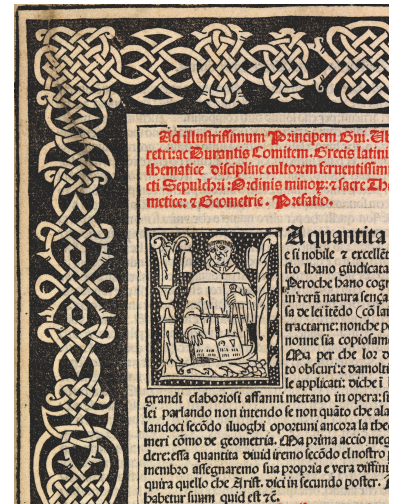 Ad illustrissimum Principem Gui. Ub
retri: ac Durantis Comitem. Grecis latini
thematice discipline cultorem ferventissim
cti Sepulchri: Ordinis minorꝝ: ⁊ sacre The
metice: ⁊ Geometrie. Prefatio.
A quantita
e si nobile ⁊ excellẽt
sto lhano giudicata
Peroche hano cogn
in rerũ natura sença
sa de lei itẽdo (cõ lai
tractarne: nonche po
nonne sia copiosam
Ma per che lor d
o obscuri: e damolti
le applicati: dichẽ i
grandi elaboriosi affanni mettano in opera: si
lei parlando non intendo se non quãto che ala
landoci secõdo iluoghi oportuni ancora la theo
meri cõmo de geometria. Ma prima accio meg
dere: essa quantita diuid iremo secõdo el nostro p
membro assegnaremo sua propria e vera diffini
quira quello che Arist. dici in secundo poster.
habetur suum quid est ⁊c.